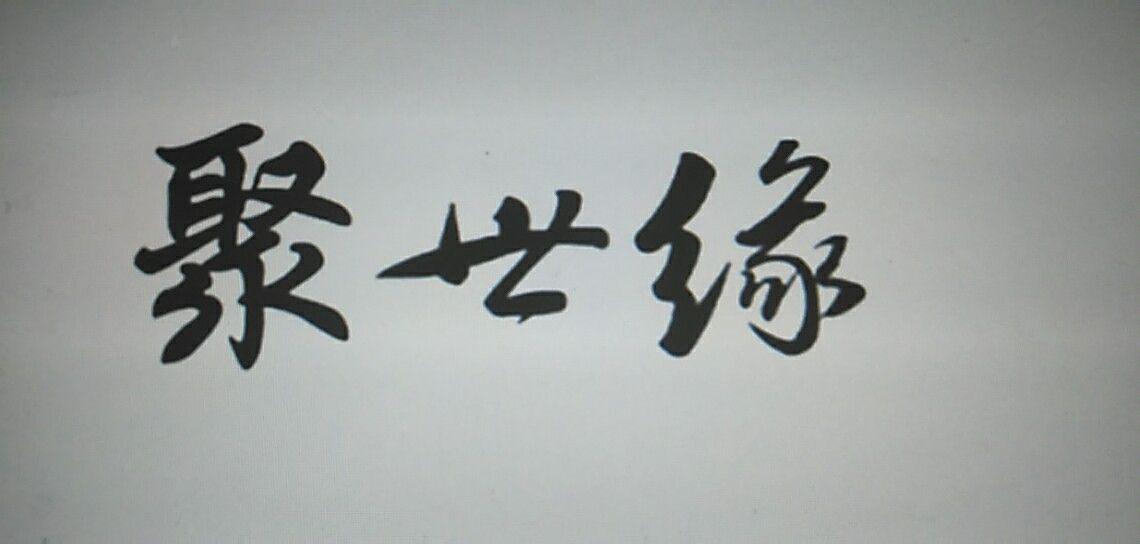 聚世缘